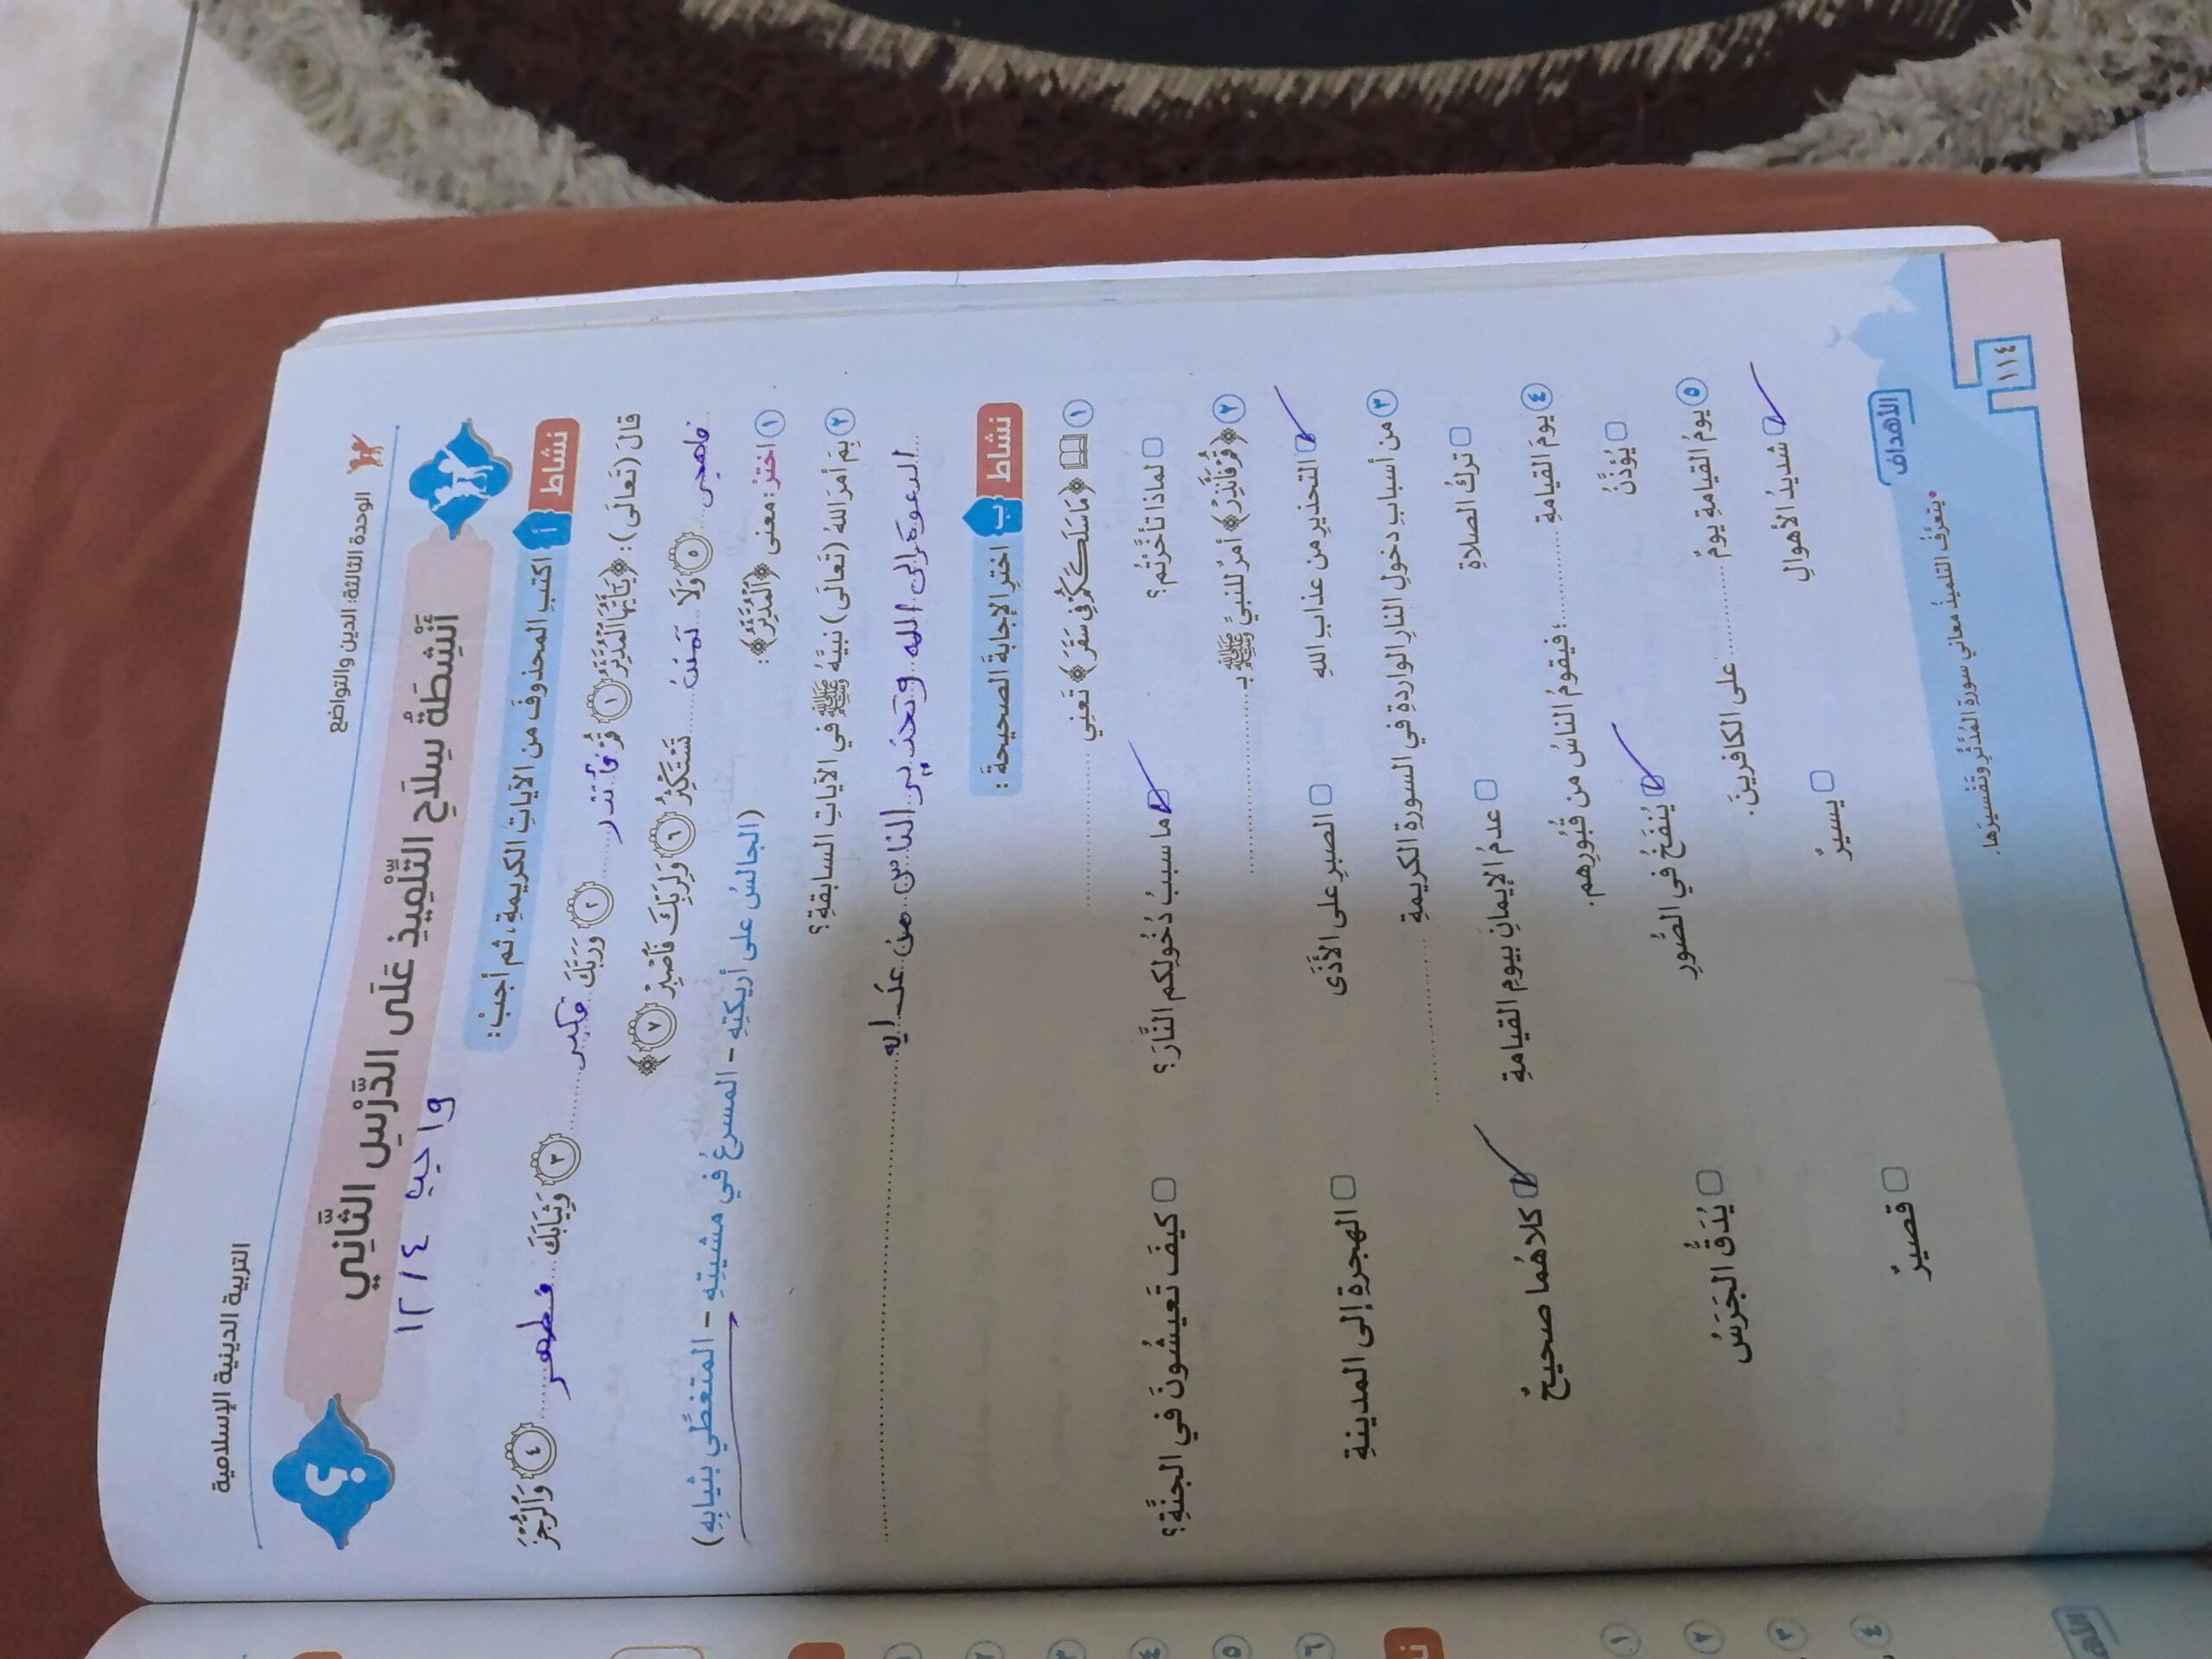 التربية الدينية الإسلامية
الوحدة الثالثة: الدين والتواضع
أَنْشِطَةُ سِلَاحِ التِّلْمِيذِ عَلَى الدَّرْسِ الثَّانِي
؟
واجب ١٢/٤
نشاط أ اكتبِ المحذوفَ من الآياتِ الكريمةِ، ثم أجبْ:
قالَ (تَعَالَى): ﴿يَٰٓأَيُّهَا ٱلْمُدَّثِّرُ ١ قُمْ فأنذر ٢ وَرَبَّكَ فكبر ٣ وَثِيَابَكَ فطهر ٤ وَٱلرُّجْزَ
فاهجر ٥ وَلَا تمنن تَسْتَكْثِرُ ٦ وَلِرَبِّكَ فَٱصْبِرْ ٧﴾
١ اخترْ: معنى ﴿ٱلْمُدَّثِّرُ﴾: (الجالسُ على أريكتِهِ – المسرعُ في مشيتِهِ – المتغطِّي بثيابِهِ)
٢ بِمَ أمرَ اللهُ (تَعَالَى) نبيَّهُ ﷺ في الآياتِ السابقةِ؟
الدعوة إلى الله وتحذير الناس من عذابه
نشاط ب اخترِ الإجابةَ الصحيحةَ:
١ ﴿مَا سَلَكَكُمْ فِي سَقَرَ﴾ تَعنِي
لماذا تأخَّرْتُم؟ ما سببُ دُخُولِكم النَّارَ؟ كيفَ تَعيشُونَ في الجنَّةِ؟
٢ ﴿قُمْ فَأَنذِرْ﴾ أمرٌ للنبيِّ ﷺ بـ
التحذيرِ من عذابِ اللهِ الصبرِ على الأَذَى الهجرةِ إلى المدينةِ
٣ من أسبابِ دخولِ النارِ الواردةِ في السورةِ الكريمةِ
تركُ الصلاةِ عدمُ الإيمانِ بيومِ القيامةِ كلاهُما صحيحٌ
٤ يومَ القيامةِ ؛ فيقومُ الناسُ من قُبُورِهم.
يُؤذَّنُ يُنْفَخُ في الصُّورِ يُدَقُّ الجَرَسُ
٥ يومُ القيامةِ يومٌ على الكافرينَ.
شديدُ الأهوالِ يسيرٌ قصيرٌ
الأهداف
• يتعرَّفُ التلميذُ معانيَ سورةِ المُدَّثِّرِ وتَفْسيرَها.
١١٤